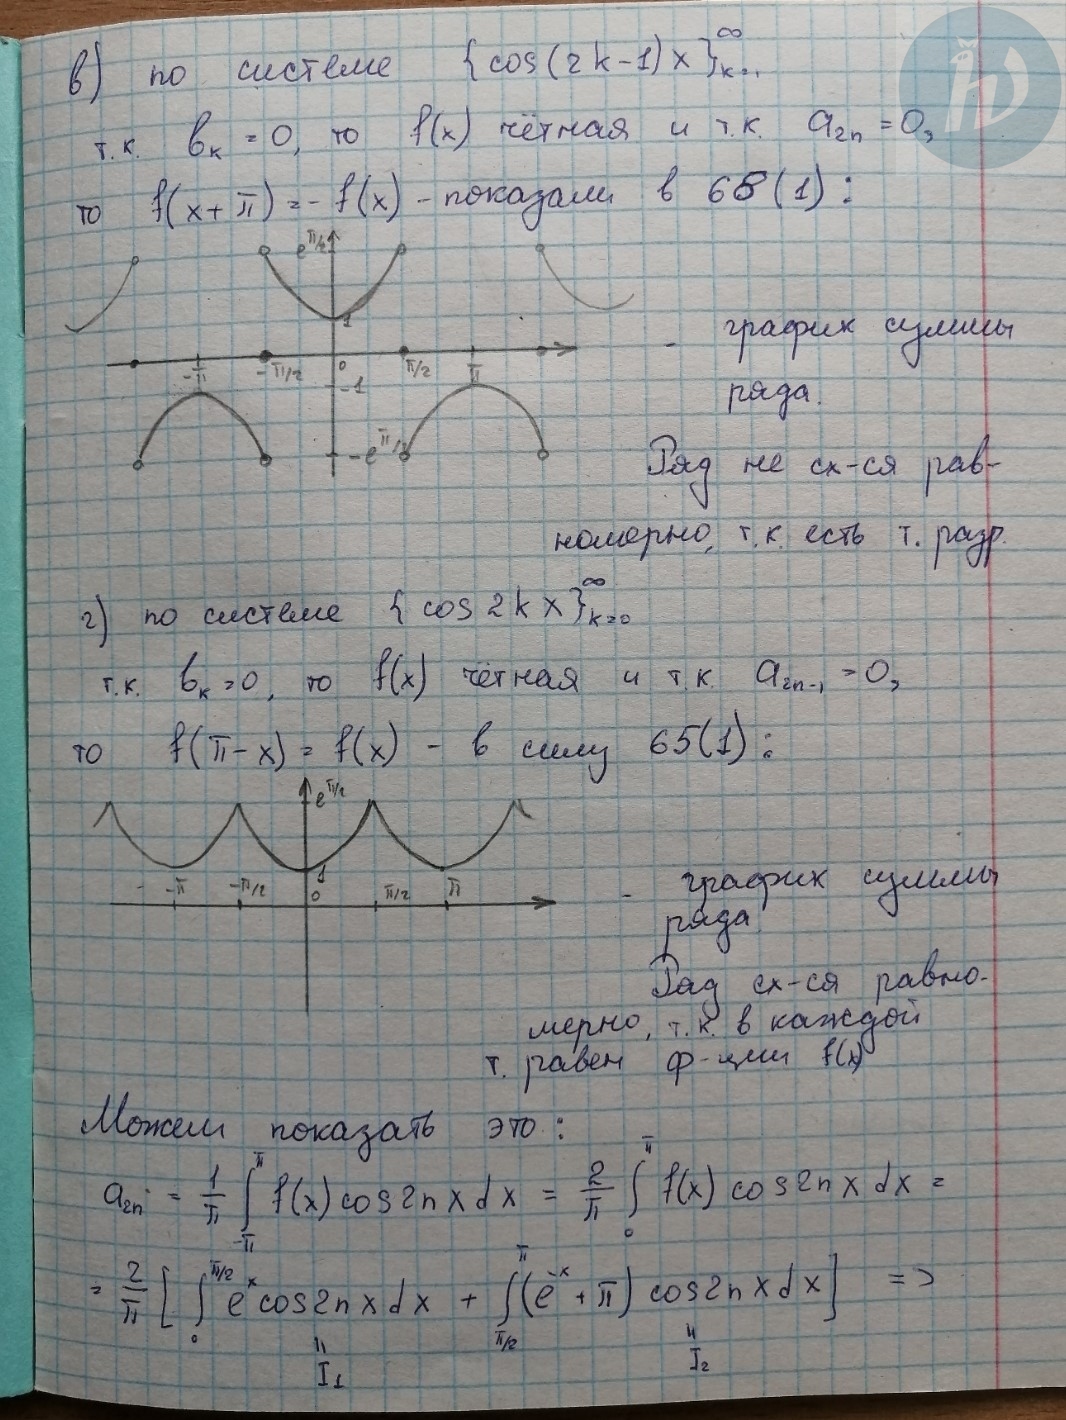 в) по системе {cos(2k-1)x}_{k=1}^∞
т.к. b_k = 0, то f(x) чётная и т.к. a_{2n} = 0,
то f(x+π) = - f(x) - показали в 65(1):
e^{π/2}
1
-π -π/2 0 π/2 π
-1
-e^{π/2}
- график суммы
ряда.
Ряд не сх-ся рав-
номерно, т.к. есть т. разр.
г) по системе {cos 2k x}_{k=0}^∞
т.к. b_k = 0, то f(x) чётная и т.к. a_{2n-1} = 0,
то f(π-x) = f(x) - в силу 65(1):
e^{π/2}
1
-π -π/2 0 π/2 π
- график суммы
ряда.
Ряд сх-ся равно-
мерно, т.к. в каждой
т. равен ф-ции f(x)
Можем показать это:
a_{2n} = 1/π ∫_{-π}^{π} f(x) cos 2n x dx = 2/π ∫_0^π f(x) cos 2n x dx =
= 2/π [ ∫_0^{π/2} e^x cos 2n x dx + ∫_{π/2}^π (e^{-x} + π) cos 2n x dx ] =>
" "
I_1 I_2